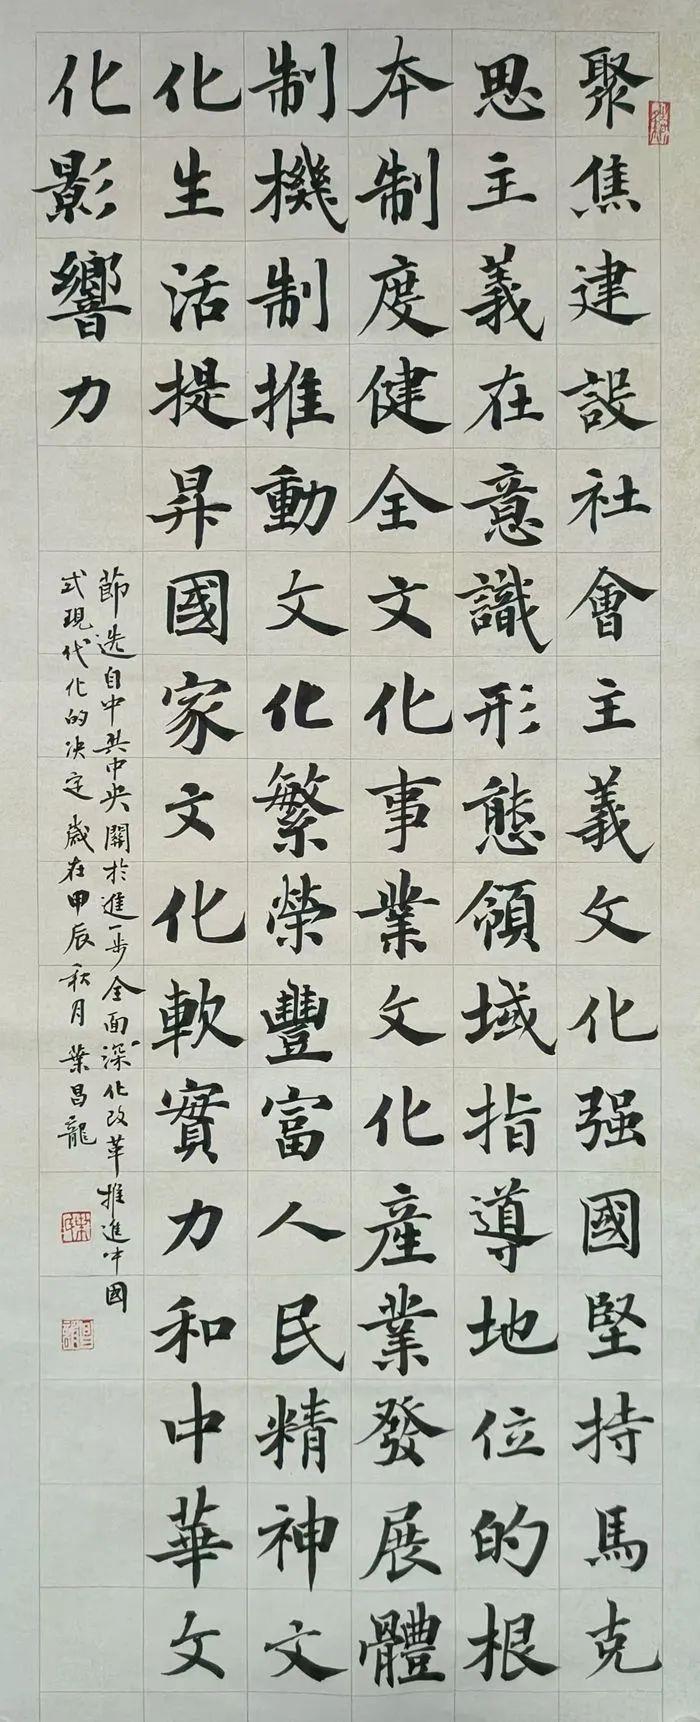 聚焦建設社會主義文化强國堅持馬克
思主義在意識形態領域指導地位的根
本制度健全文化事業文化產業發展體
制機制推動文化繁榮豐富人民精神文
化生活提昇國家文化軟實力和中華文
化影響力
節选自中共中央關於進一步全面深化改革推進中國
式現代化的决定歲在甲辰秋月葉昌龍